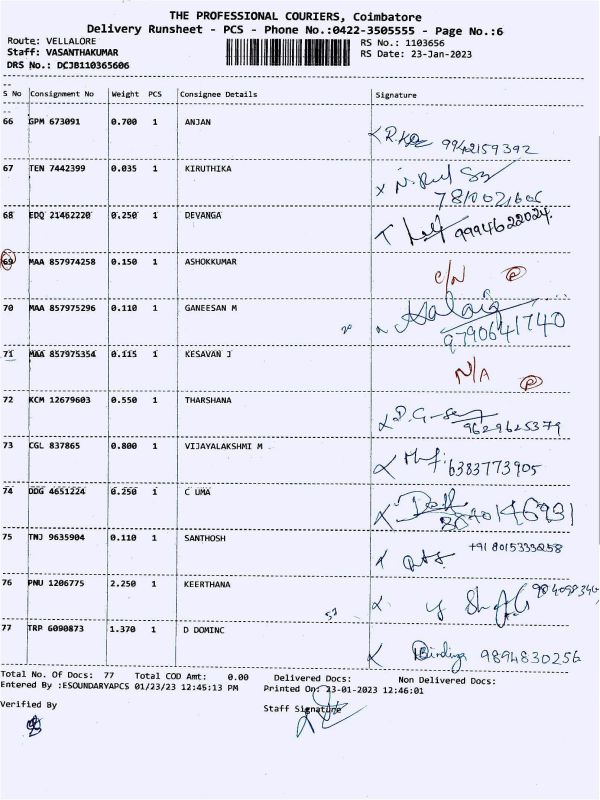 THE PROFESSIONAL COURIERS, Coimbatore
Delivery Runsheet - PCS - Phone No.:0422-3505555 - Page No.:6
Route: VELLALORE RS No.: 1103656
Staff: VASANTHAKUMAR RS Date: 23-Jan-2023
DRS No.: DCJB110365606
S No Consignment No Weight PCS Consignee Details Signature
66 GPM 673091 0.700 1 ANJAN
9942159392
67 TEN 7442399 0.035 1 KIRUTHIKA
7810021606
68 EDQ 21462220 0.250 1 DEVANGA
9994622024.
69 MAA 857974258 0.150 1 ASHOKKUMAR
C/N
70 MAA 857975296 0.110 1 GANEESAN M
Kalaiq
9790641740
71 MAA 857975354 0.115 1 KESAVAN J
N/A
72 KCM 12679603 0.550 1 THARSHANA
9629625379
73 CGL 837865 0.800 1 VIJAYALAKSHMI M
6383773905
74 DDG 4651224 0.250 1 C UMA
75 TNJ 9635904 0.110 1 SANTHOSH
+91 8015333258
76 PNU 1206775 2.250 1 KEERTHANA
77 TRP 6090873 1.370 1 D DOMINC
9894830256
Total No. Of Docs: 77 Total COD Amt: 0.00 Delivered Docs: Non Delivered Docs:
Entered By :ESOUNDARYAPCS 01/23/23 12:45:13 PM Printed On: 23-01-2023 12:46:01
Verified By Staff Signature